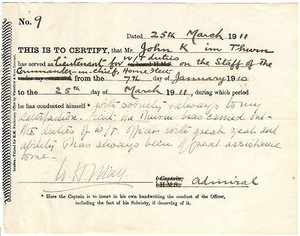 No. 9
Dated 25th March 1911
THIS IS TO CERTIFY, that Mr. John K im Thurn
has served as Lieutenant for W/T duties on the Staff of the
Commander-in-Chief, Home Fleet
from the 7th day of January 1910
to the 25th day of March 1911, during which period
he has conducted himself with sobriety & always to my
satisfaction. Lieut. im Thurn has carried out
the duties of W/T Officer with great zeal and
ability & has always been of great assistance
to me.
W H May
Captain, H.M.S. Admiral
* Here the Captain is to insert in his own handwriting the conduct of the Officer,
including the fact of his Sobriety, if deserving of it.